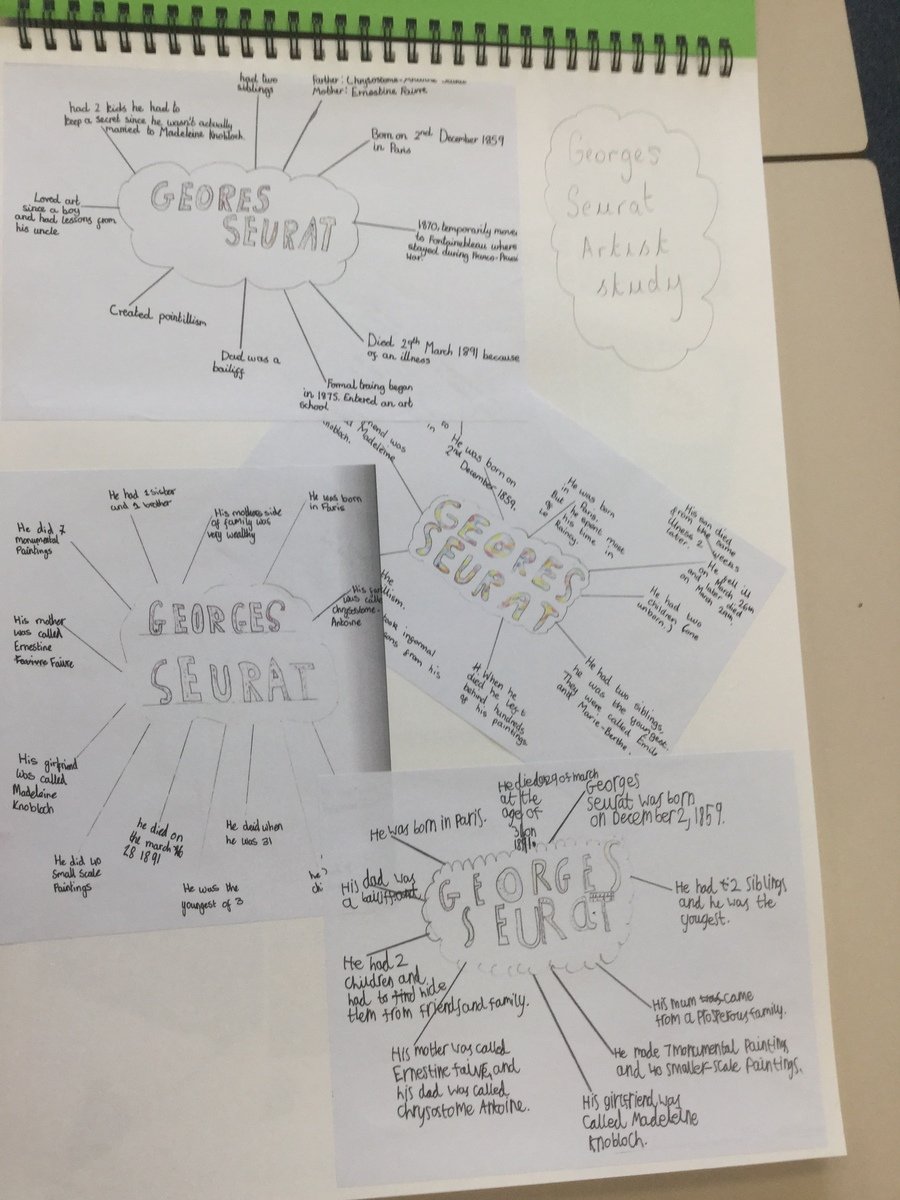 had 2 kids he had to
keep a secret since he wasn't actually
married to Madeleine Knobloch
had two
siblings
Farther: Chrysostome-Antoine
Mother: Ernestine Faivre
Born on 2nd December 1859
in Paris
Loved art
since a boy
and had lessons from
his uncle
GEORES
SEURAT
1870, temporarily moves
to Fontainebleau where
stayed during Franco-
War.
Created pointillism
Dad was a
bailiff
Formal traing began
in 1875. Entered an art
school
Died 29th March 1891 because
of an illness
Georges
Seurat
Artist
study
was
Madeleine
Knobloch.
He was born on
2nd December 1859.
He was born
in Paris.
But he spent most
of his time in
Le Rainey.
His son died
from the same
illness 2 weeks
later.
He fell ill
on March 26th
and later died
on March 29th,
GEORES
SEURAT
He had two
children (one
unborn.)
He had two siblings,
he was the youngest.
They were called Emile
and Marie-Berthe.
When he
died he left
behind hundreds
of his paintings
the
informal
from his
He had 1 sister
and 1 brother
He did 7
monumental
Paintings
His mothers side
of family was
very wealthy
He was born
in Paris
His
was called
chrysostome-
Antoine
His mother
was called
Ernestine
Faivre
GEORGES
SEURAT
His girlfriend
was called
Madelaine
Knobloch
He did 40
Small scale
Paintings
he died on
the march
28 1891
He was the
youngest of 3
He died when
he was 31
He was born in Paris.
He died 29 of march
at the
age of
31 on
1891.
Georges
seurat was born
on December 2, 1859.
His dad was
a bailiff
GEORGES
SEURAT
He had 2 siblings
and he was the
yougest.
He had 2
children and
had to find hide
them from friends and family.
His mum was came
from a prosperous family.
His mother was called
Ernestine faive, and
his dad was called
chrysostome Antoine.
He made 7 monumental painting
and 40 smaller-scale paintings.
His girlfriend was
called Madeleine
Knobloch.